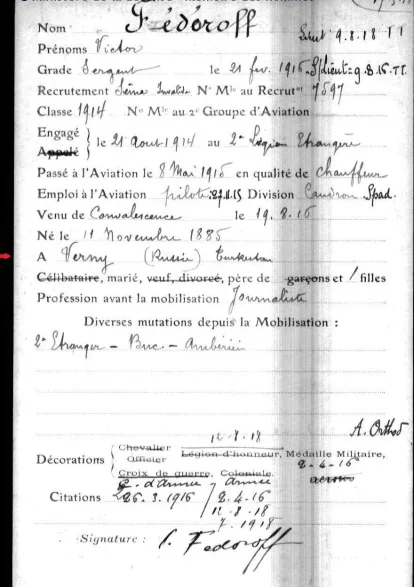 Nom Fédoroff S/Lieut 9.8.18 TT
Prénoms Victor
Grade Sergent le 21 fev. 1916 - S/Lieut = 9.8.18. TT.
Recrutement Seine Nº Mle au Recrut 7597
Classe 1914 Nº Mle au 2e Groupe d'Aviation
Engagé
Appelé
le 21 Aout 1914 au 2e Légion Etrangère
Passé à l'Aviation le 8 Mai 1915 en qualité de chauffeur
Emploi à l'Aviation pilote 27.11.15 Division Caudron. Spad.
Venu de Convalescence le 19.8.16
Né le 11 Novembre 1885
A Verny (Russie) Turkestan
Célibataire, marié, veuf, divorcé, père de garçons et 1 filles
Profession avant la mobilisation Journaliste
Diverses mutations depuis la Mobilisation :
2e Etranger - Buc - Ambérieu
A. Orthod
12-8-18
Chevalier
Décorations Officier Légion d'honneur, Médaille Militaire,
2-4-16
Croix de guerre, Coloniale.
C. d'Armée Armée
Citations 26.3.1916 2.4-16
12-8-18
7.1918
Signature : Fedoroff